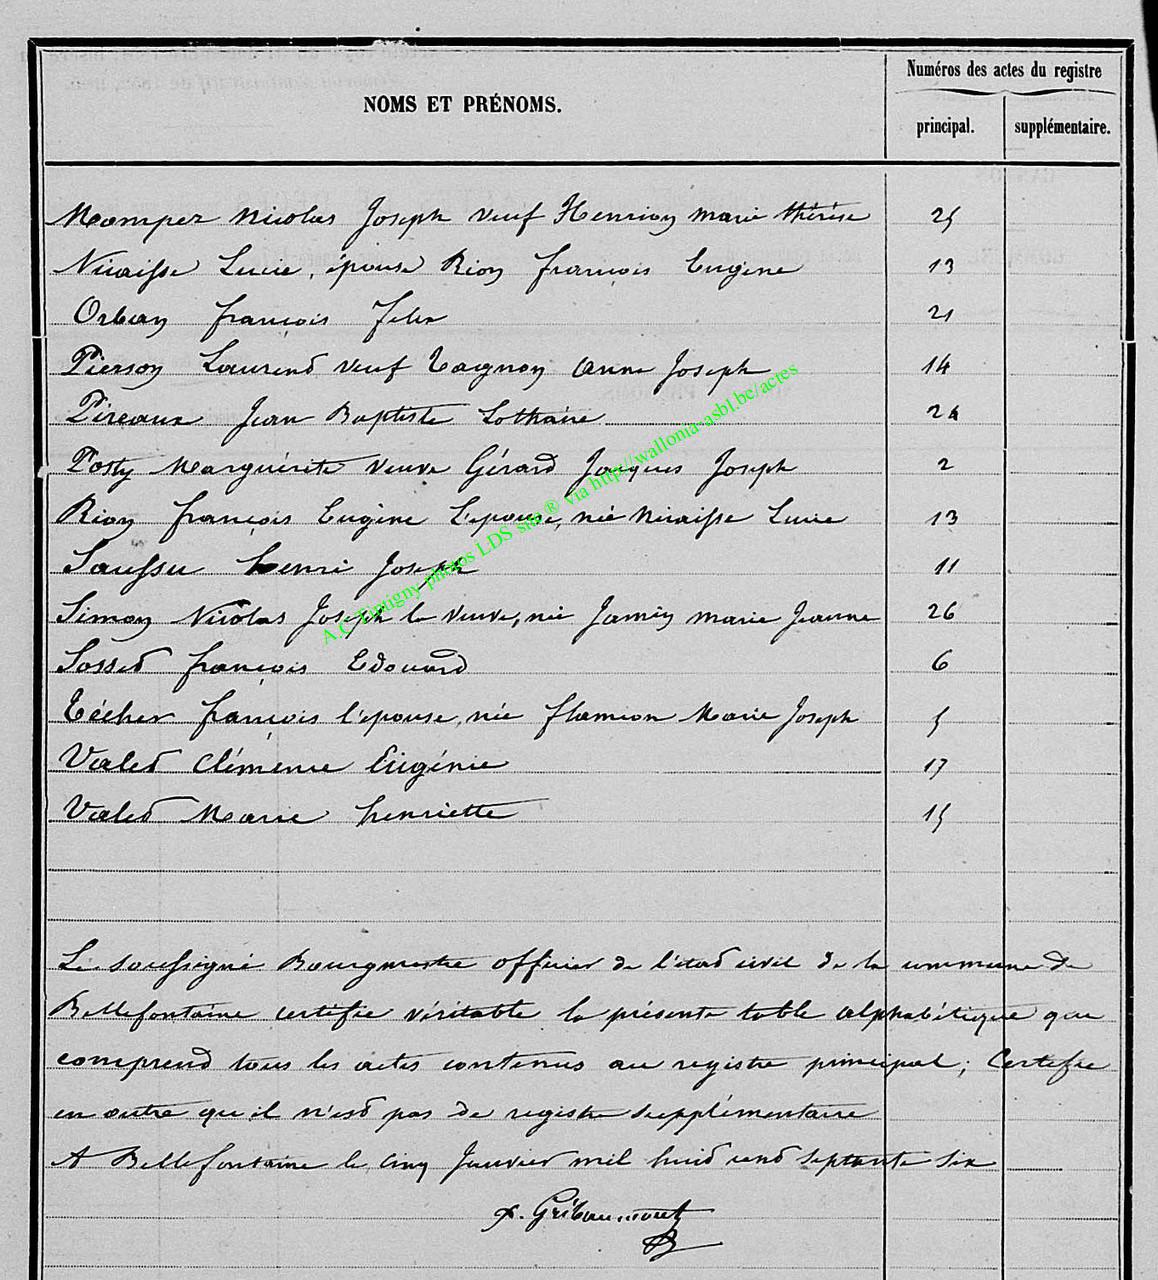 Numéros des actes du registre
NOMS ET PRÉNOMS.
principal. supplémentaire.
Mompez Nicolas Joseph veuf Henrion marie thérèse 25
Nicaisse Lucie, épouse Rion françois Eugène 13
Orban françois Felix 21
Pierson Laurend veuf Tagnon Anne Joseph 14
Pireaux Jean Baptiste Lothaire
Posty Marguérite veuve Gérard Jacques Joseph 2
Rion françois Eugène l'epouse, née Nicaisse Lucie 13
Henri Joseph 11
Simon Nicolas Joseph la veuve, née Jamin marie Jeanne 26
Sosset françois Edouard 6
françois l'epouse, née flamion Marie Joseph 5
Valet Clémence Eugénie 17
Valet Marie henriette 15
A.C. Tintigny photos LDS site ® via http://wallonia-asbl.be/actes
Le soussigné Bourgmestre officier de l'état civil de la commune de
Bellefontaine certifie véritable la présente table alphabétique que
comprend tous les actes contenus au registre principal; Certifie
en outre qu'il n'est pas de registre supplémentaire
A Bellefontaine le cinq Janvier mil huit cent septante six